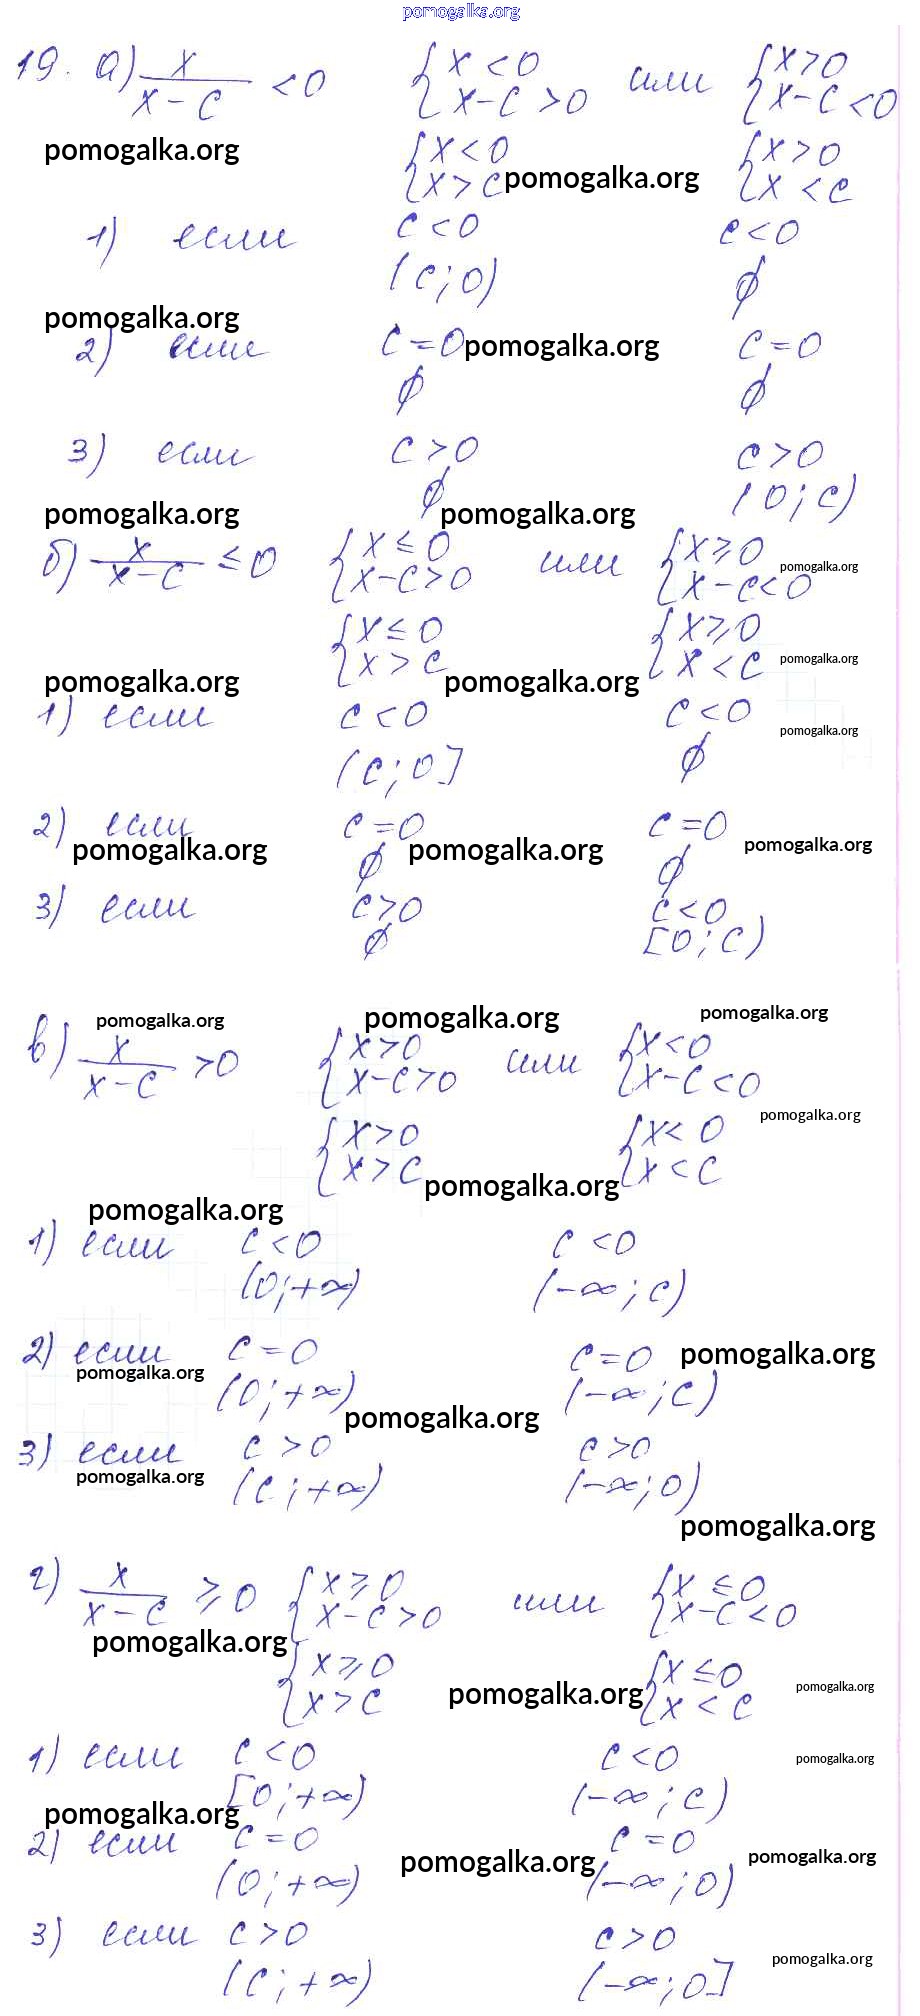 pomogalka.org
19. а) x/(x-c) < 0 { x < 0 или { x > 0
{ x-c > 0 { x-c < 0
pomogalka.org { x < 0 { x > 0
{ x > c pomogalka.org { x < c
1) если c < 0 c < 0
(c; 0) ∅
pomogalka.org
2) если c = 0 pomogalka.org c = 0
∅ ∅
3) если c > 0 c > 0
∅ (0; c)
pomogalka.org pomogalka.org
б) x/(x-c) ≤ 0 { x ≤ 0 или { x ≥ 0 pomogalka.org
{ x-c > 0 { x-c < 0
{ x ≤ 0 { x ≥ 0
{ x > c { x < c pomogalka.org
pomogalka.org pomogalka.org
1) если c < 0 c < 0 pomogalka.org
(c; 0] ∅
2) если c = 0 c = 0
pomogalka.org pomogalka.org pomogalka.org
∅ ∅
3) если c > 0 c < 0
∅ [0; c)
pomogalka.org pomogalka.org pomogalka.org
в) x/(x-c) > 0 { x > 0 или { x < 0
{ x-c > 0 { x-c < 0
pomogalka.org
{ x > 0 { x < 0
{ x > c { x < c
pomogalka.org
pomogalka.org
1) если c < 0 c < 0
(0; +∞) (-∞; c)
2) если c = 0 c = 0 pomogalka.org
pomogalka.org
(0; +∞) (-∞; c)
pomogalka.org
3) если c > 0 c > 0
pomogalka.org (c; +∞) (-∞; 0)
pomogalka.org
г) x/(x-c) ≥ 0 { x ≥ 0 или { x ≤ 0
{ x-c > 0 { x-c < 0
pomogalka.org
{ x ≥ 0 { x ≤ 0 pomogalka.org
{ x > c pomogalka.org { x < c
1) если c < 0 c < 0 pomogalka.org
[0; +∞) (-∞; c)
pomogalka.org
2) если c = 0 c = 0
pomogalka.org pomogalka.org
(0; +∞) (-∞; 0)
3) если c > 0 c > 0
pomogalka.org
(c; +∞) (-∞; 0]